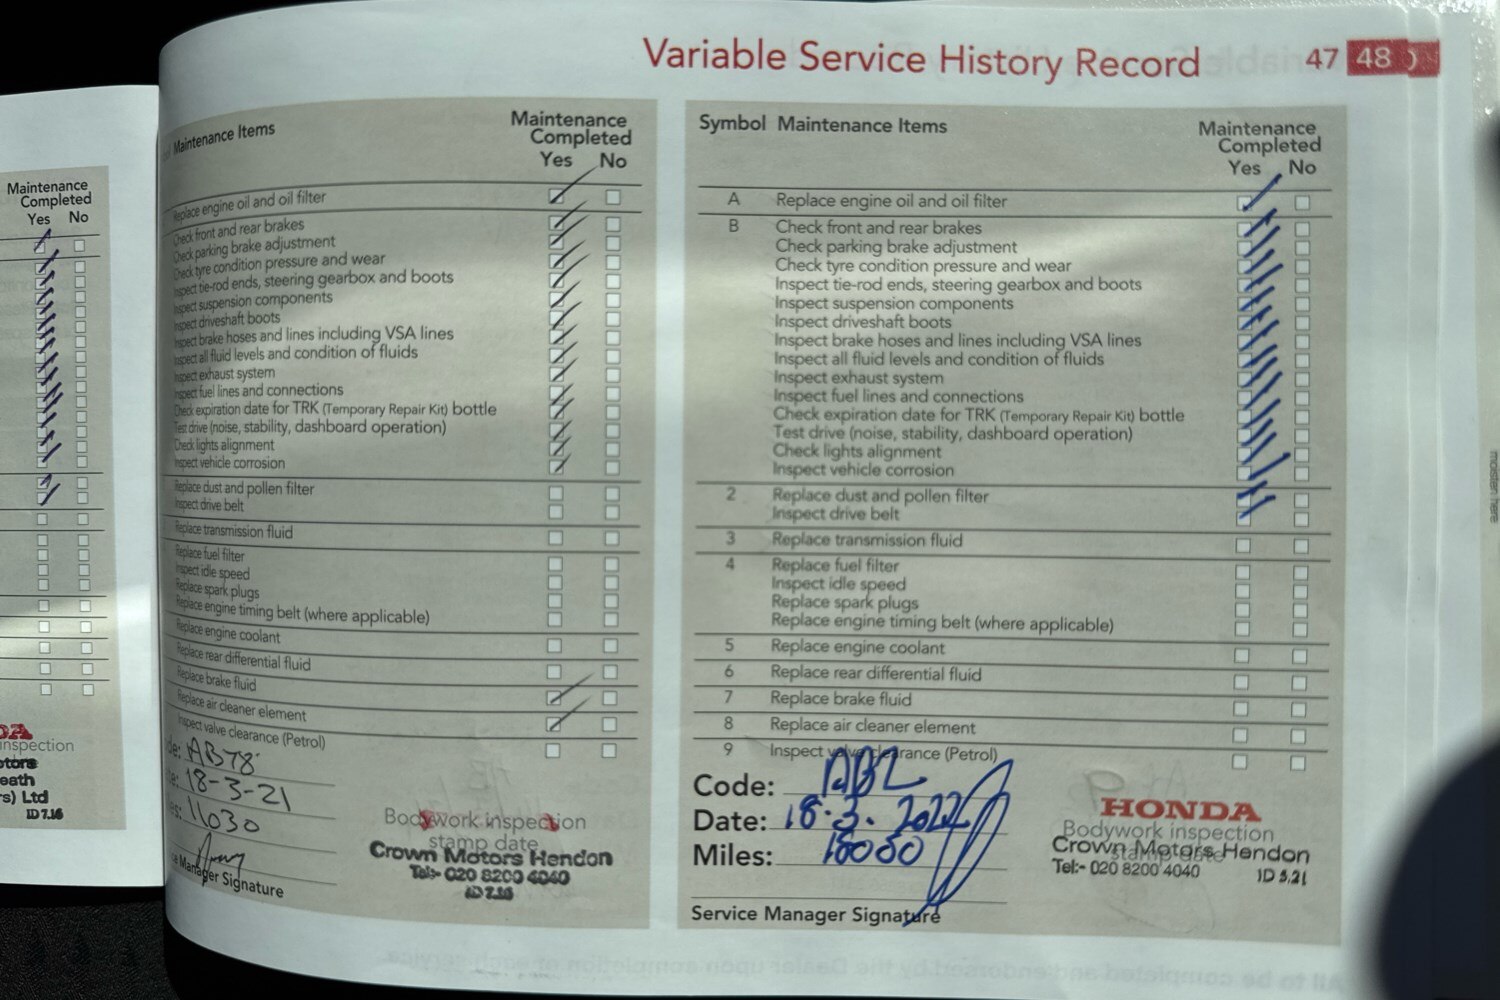 Variable Service History Record 47 48
Maintenance
Completed
Yes No
inspection
eath
s) Ltd
ID 7.16
Maintenance Items
Maintenance
Completed
Yes No
Replace engine oil and oil filter
Check front and rear brakes
Check parking brake adjustment
Check tyre condition pressure and wear
Inspect tie-rod ends, steering gearbox and boots
Inspect suspension components
Inspect driveshaft boots
Inspect brake hoses and lines including VSA lines
Inspect all fluid levels and condition of fluids
Inspect exhaust system
Inspect fuel lines and connections
Check expiration date for TRK (Temporary Repair Kit) bottle
Test drive (noise, stability, dashboard operation)
Check lights alignment
Inspect vehicle corrosion
Replace dust and pollen filter
Inspect drive belt
Replace transmission fluid
Replace fuel filter
Inspect idle speed
Replace spark plugs
Replace engine timing belt (where applicable)
Replace engine coolant
Replace rear differential fluid
Replace brake fluid
Replace air cleaner element
Inspect valve clearance (Petrol)
AB78
18-3-21
11030
Manager Signature
Bodywork inspection
stamp date
Crown Motors Hendon
Tel:- 020 8200 4040
ID 7.16
Symbol Maintenance Items
Maintenance
Completed
Yes No
A Replace engine oil and oil filter
B Check front and rear brakes
Check parking brake adjustment
Check tyre condition pressure and wear
Inspect tie-rod ends, steering gearbox and boots
Inspect suspension components
Inspect driveshaft boots
Inspect brake hoses and lines including VSA lines
Inspect all fluid levels and condition of fluids
Inspect exhaust system
Inspect fuel lines and connections
Check expiration date for TRK (Temporary Repair Kit) bottle
Test drive (noise, stability, dashboard operation)
Check lights alignment
Inspect vehicle corrosion
2 Replace dust and pollen filter
Inspect drive belt
3 Replace transmission fluid
4 Replace fuel filter
Inspect idle speed
Replace spark plugs
Replace engine timing belt (where applicable)
5 Replace engine coolant
6 Replace rear differential fluid
7 Replace brake fluid
8 Replace air cleaner element
9 Inspect valve clearance (Petrol)
Code: AB2
Date: 18.3.2022
Miles: 18080
Service Manager Signature
HONDA
Bodywork inspection
stamp date
Crown Motors Hendon
Tel:- 020 8200 4040 ID 5.21
moisten here